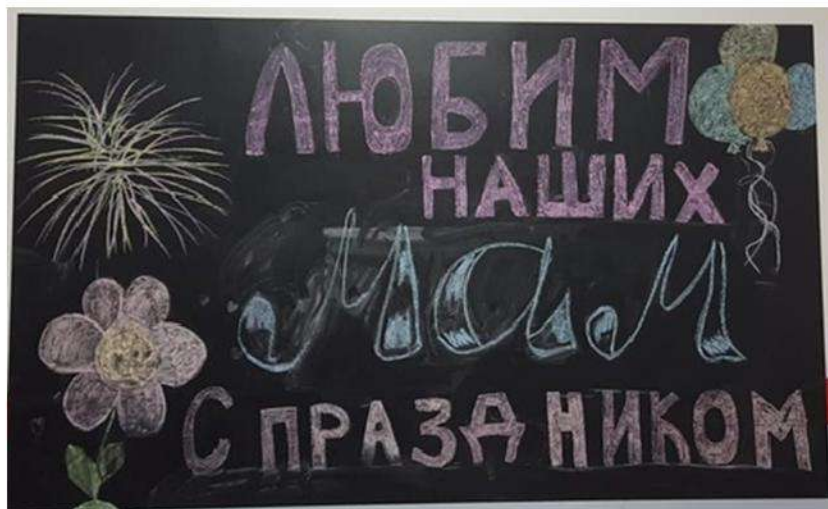 ЛЮБИМ
НАШИХ
мам
С ПРАЗДНИКОМ